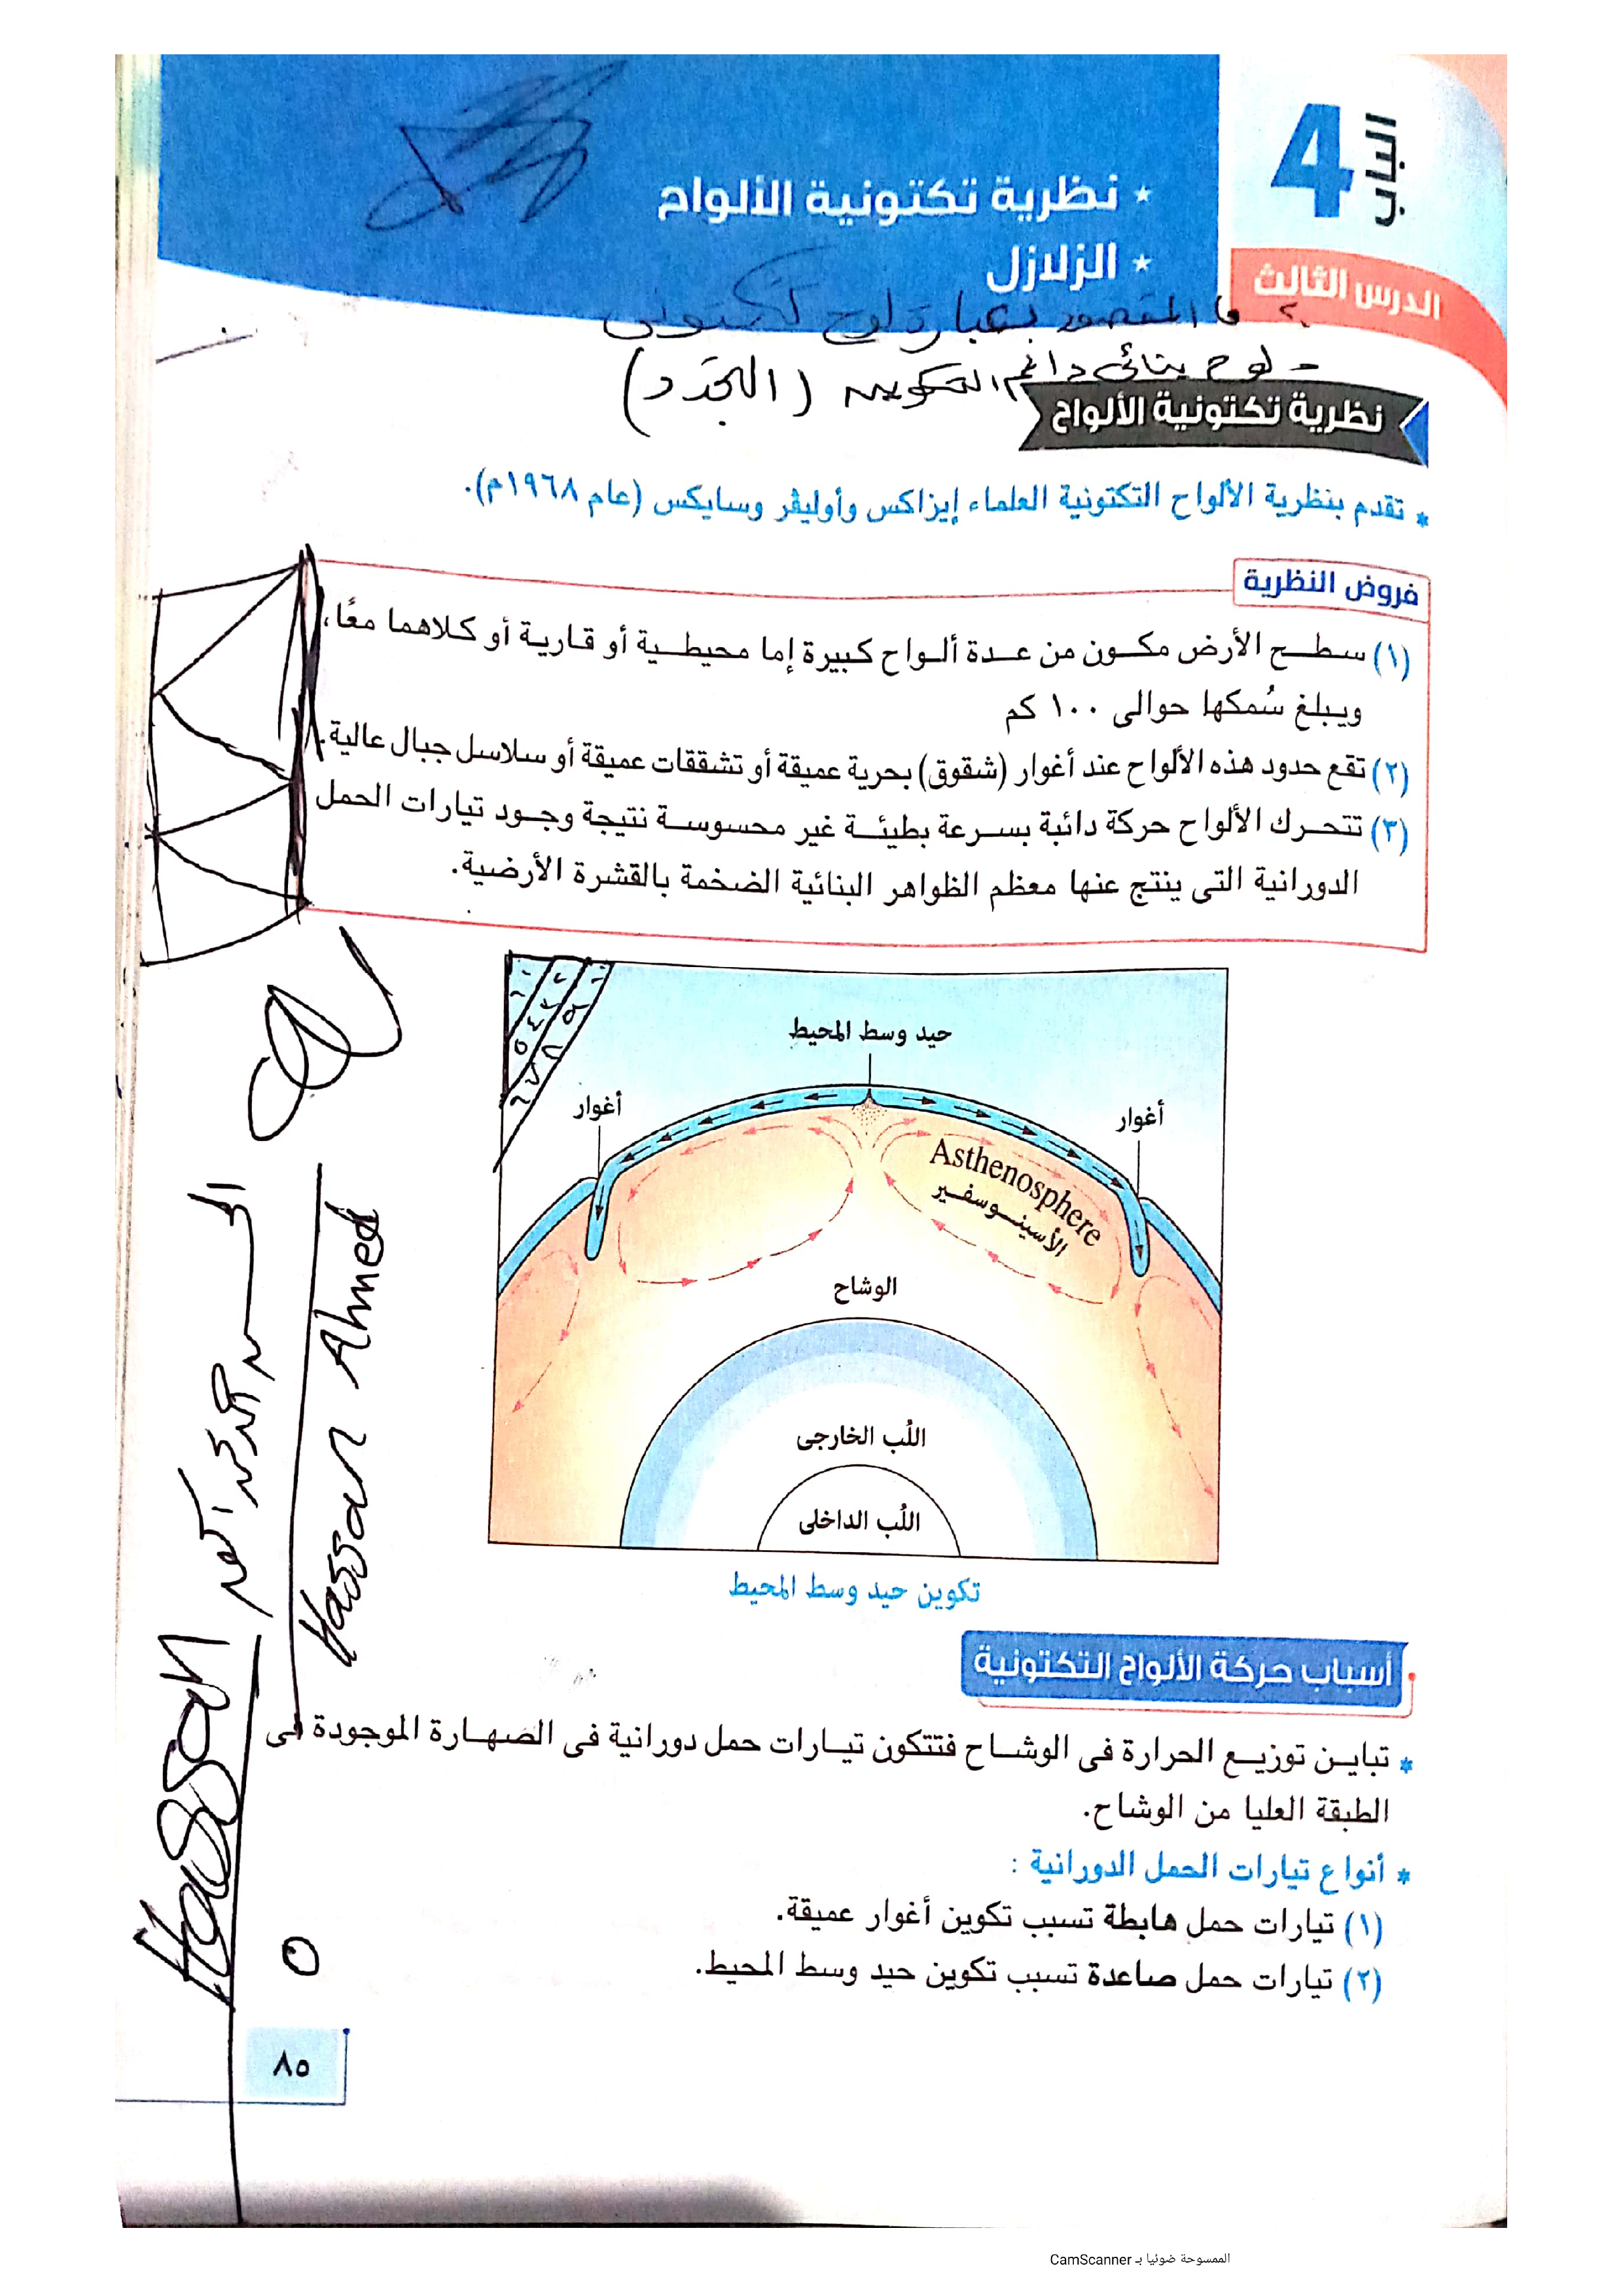 الباب 4
الدرس الثالث
* نظرية تكتونية الألواح
* الزلازل
ما المقصود بعبارة لوح تكتونى
- لوح بنائى دائم التكوين (التجدد)
نظرية تكتونية الألواح
* تقدم بنظرية الألواح التكتونية العلماء إيزاكس وأوليڤر وسايكس (عام ١٩٦٨م).
فروض النظرية
(١) سطح الأرض مكون من عدة ألواح كبيرة إما محيطية أو قارية أو كلاهما معًا،
ويبلغ سُمكها حوالى ١٠٠ كم
(٢) تقع حدود هذه الألواح عند أغوار (شقوق) بحرية عميقة أو تشققات عميقة أو سلاسل جبال عالية.
(٣) تتحرك الألواح حركة دائبة بسرعة بطيئة غير محسوسة نتيجة وجود تيارات الحمل
الدورانية التى ينتج عنها معظم الظواهر البنائية الضخمة بالقشرة الأرضية.
حيد وسط المحيط
أغوار
أغوار
Asthenosphere
الأسينوسفير
الوشاح
اللُب الخارجى
اللُب الداخلى
تكوين حيد وسط المحيط
Hassan Ahmed
Hassan
أسباب حركة الألواح التكتونية
* تباين توزيع الحرارة فى الوشاح فتتكون تيارات حمل دورانية فى الصهارة الموجودة فى
الطبقة العليا من الوشاح.
* أنواع تيارات الحمل الدورانية :
(١) تيارات حمل هابطة تسبب تكوين أغوار عميقة.
(٢) تيارات حمل صاعدة تسبب تكوين حيد وسط المحيط.
٨٥
الممسوحة ضوئيا بـ CamScanner